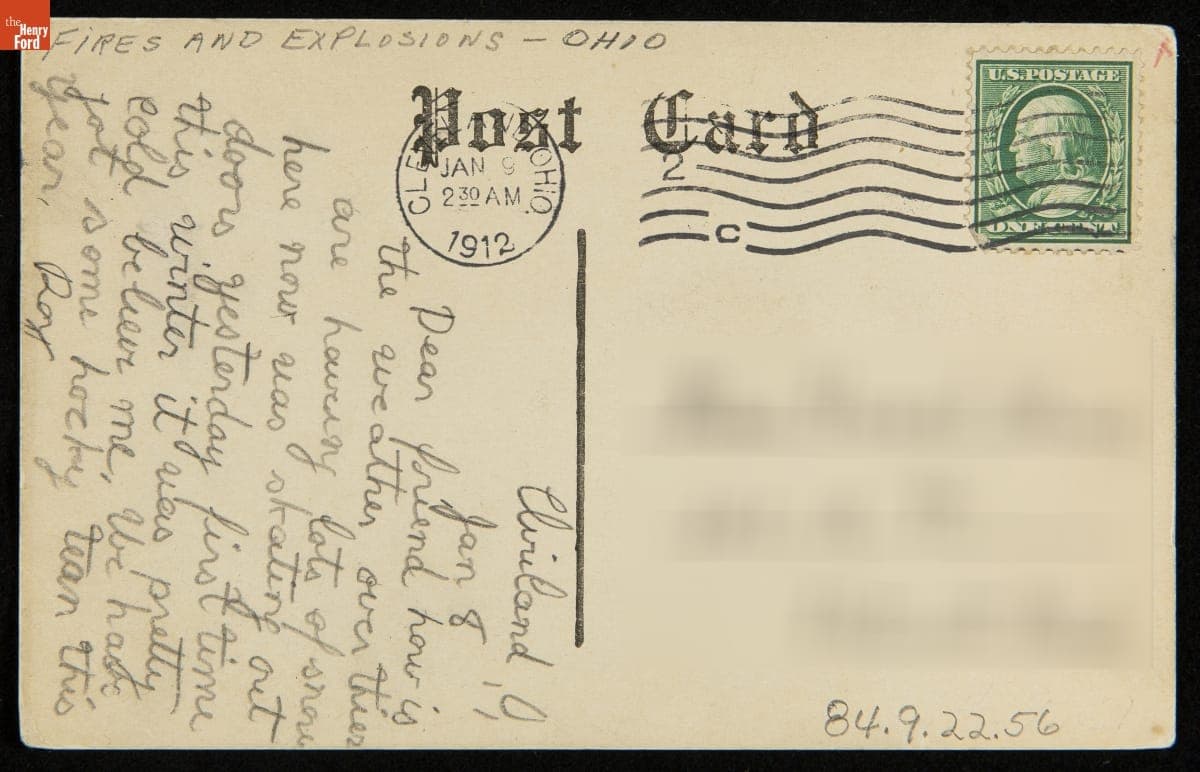 the
Henry
Ford
FIRES AND EXPLOSIONS - OHIO
Post Card
CLEVELAND, OHIO
JAN 9
2 30 AM
1912
2
C
U.S. POSTAGE
ONE CENT
Cliviland O
Jan 8, 11
Dear friend how is
the weather over thier
are having lots of snow
here now was skating out
doors yesterday first
this winter it was pretty time
cold beleve me, We have
got some hocky team this
year,
Roy
84.9.22.56